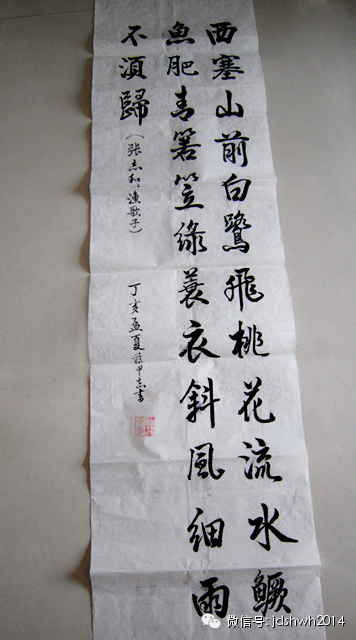 西塞山前白鹭飛桃花流水鱖
魚肥青箬笠綠蓑衣斜風细雨
不湏歸(张志和漁歌子)
丁亥孟夏
志書
微信号: jdshwh2014